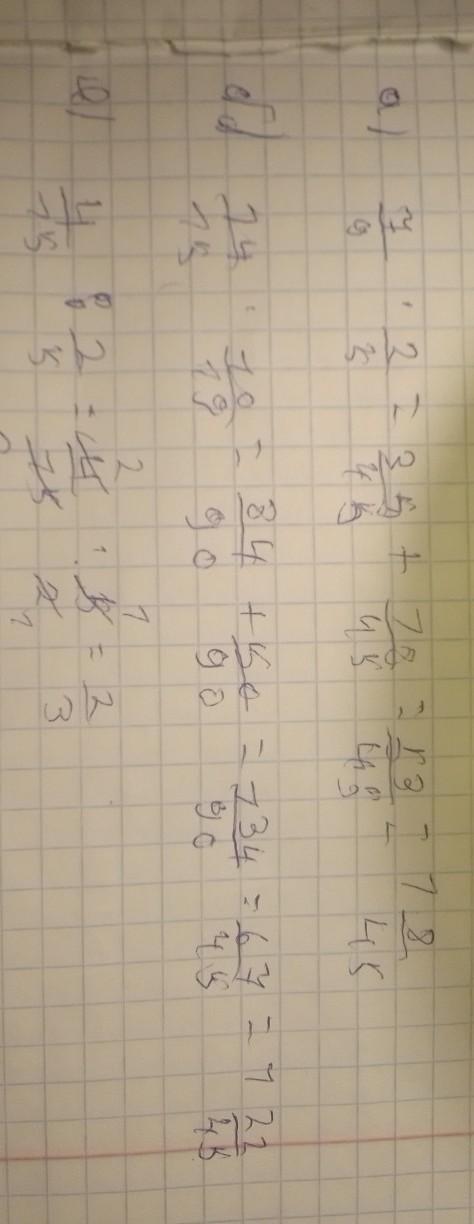 а) 7/9 · 2/5 = 35/45 + 18/45 = 53/45 = 1 8/45
б) 14/15 · 10/18 = 84/90 + 50/90 = 134/90 = 67/45 = 1 22/45
в) 4/15 : 2/5 = 4/15 · 5/2 = 2/3